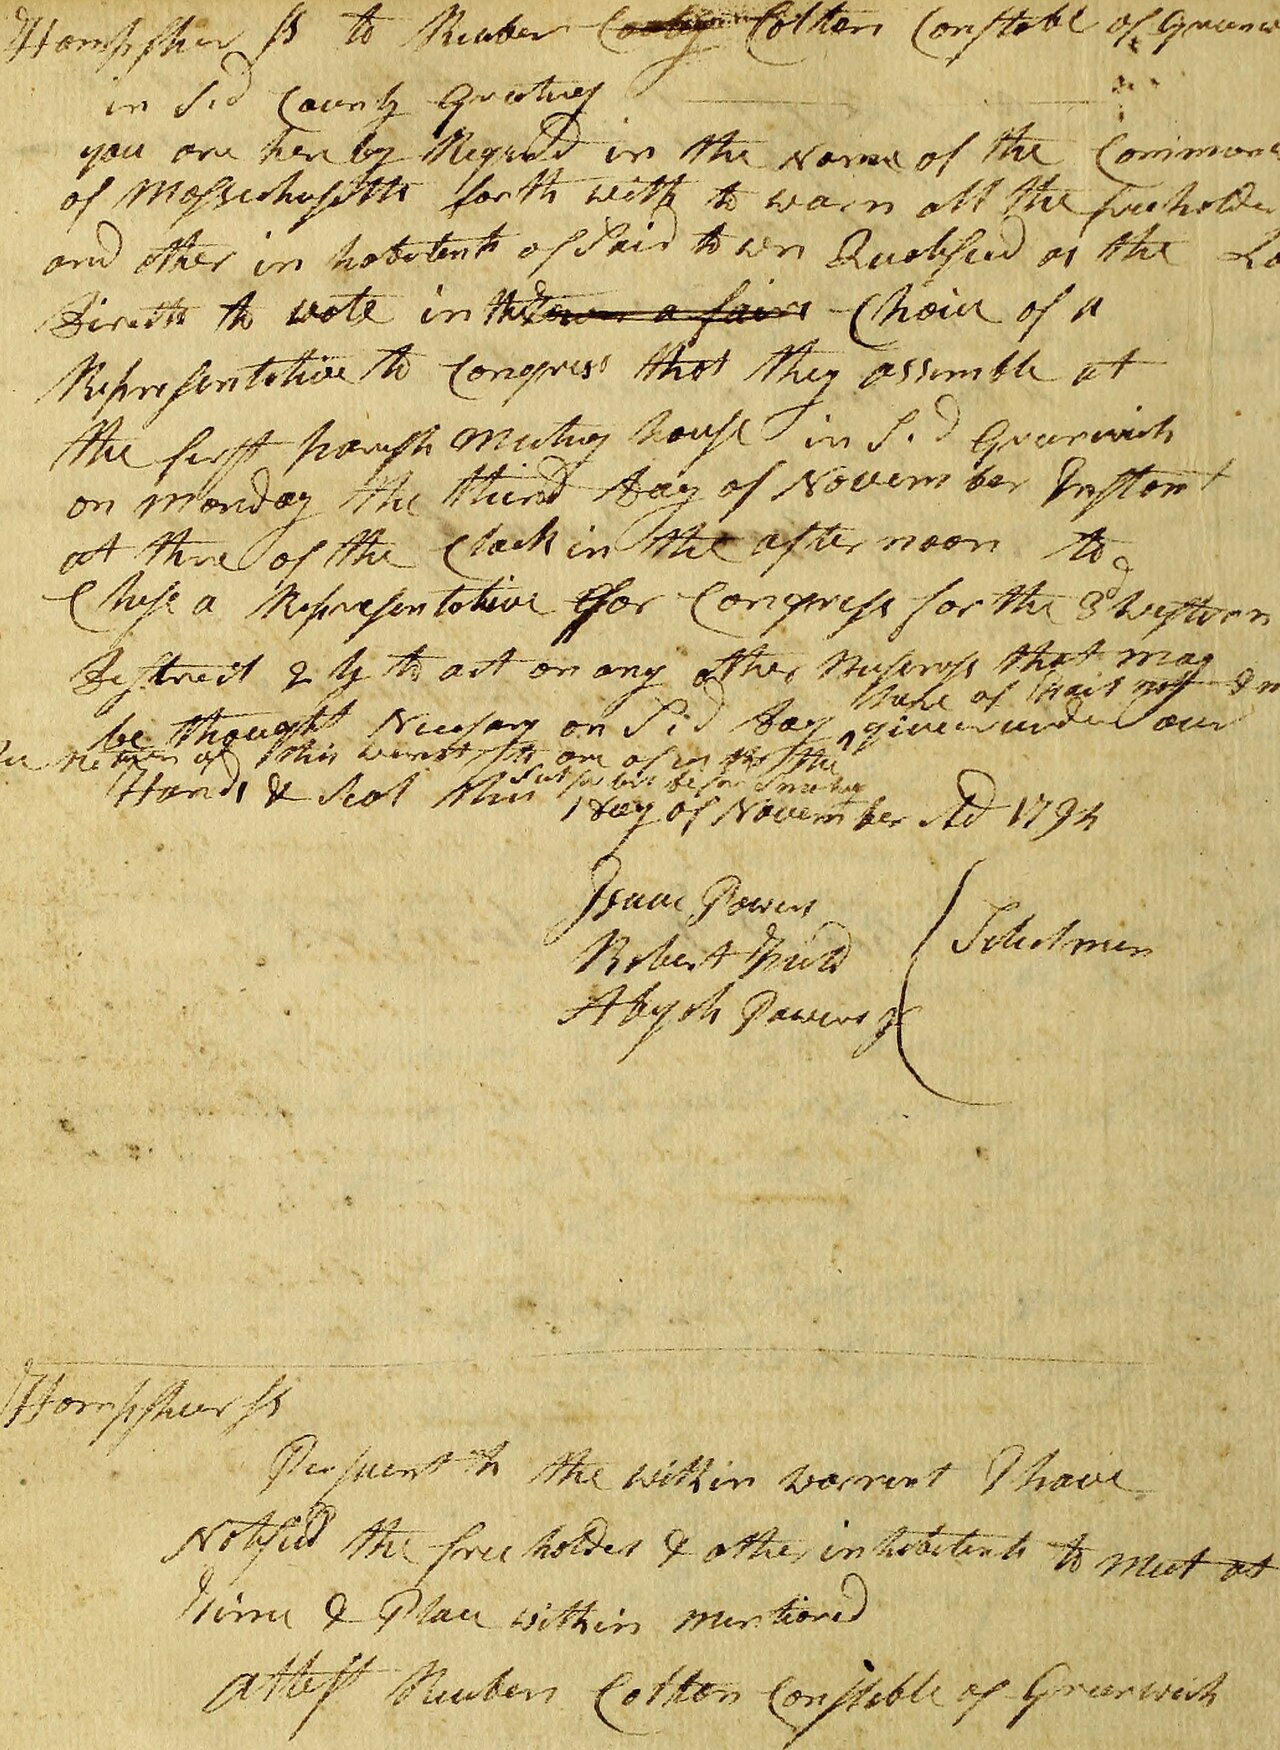 Hampsher ss to Reuben Colton Constable of Greenw
in Sd County Greeting
you are here by Requrd in the Name of the Common
of Massechusetts forth with to warn all the freeholder
and other in habetents of Said town Qualified as the La
Directs to vote in the Town a fairs Choice of a
Representetive to Congress that they assemble at
the first parish Meeting house in Sd Greenwich
on Monday the third Day of November Instant
at three of the Clock in the afternoon to
Chuse a Representetive for Congress for the 3d Western
Destrect & ly to act on any other Business that may
be thought Necesary on Sd Day given under our
return of this warrent to one of us the
Hands & Seal this
1 Day of November AD 1794
Isaac Powers
Robert Field
Abijah Powers Jr
Selectmen
Hampsheer ss
Persuent to the within warrent I have
Notified the free holders & other inhabetents to meet at
Time & Place within mentioned
attest Reuben Colton Constable of Greenwich